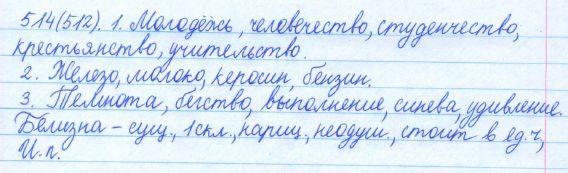 514(512). 1. Молодёжь, человечество, студенчество,
крестьянство, учительство.
2. Железо, молоко, керосин, бензин.
3. Темнота, бегство, выполнение, синева, удивление.
Белизна – сущ., 1скл., нариц., неодуш., стоит в ед.ч.,
И.п.